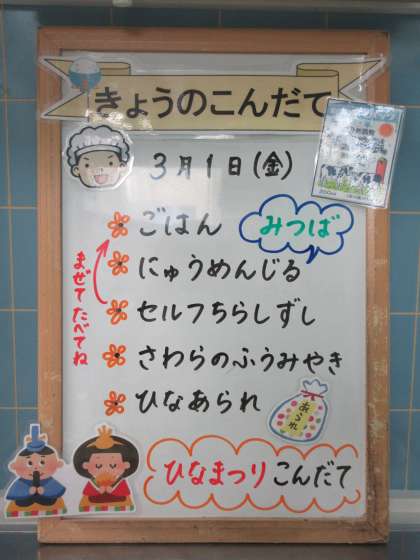 きょうのこんだて
3月1日(金)
ごはん
みつば
にゅうめんじる
まぜてたべてね
セルフちらしずし
さわらのふうみやき
ひなあられ
あられ
ひなまつりこんだて